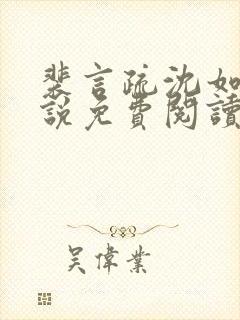 裴言疏沈如
說免費閱讀
吴偉業